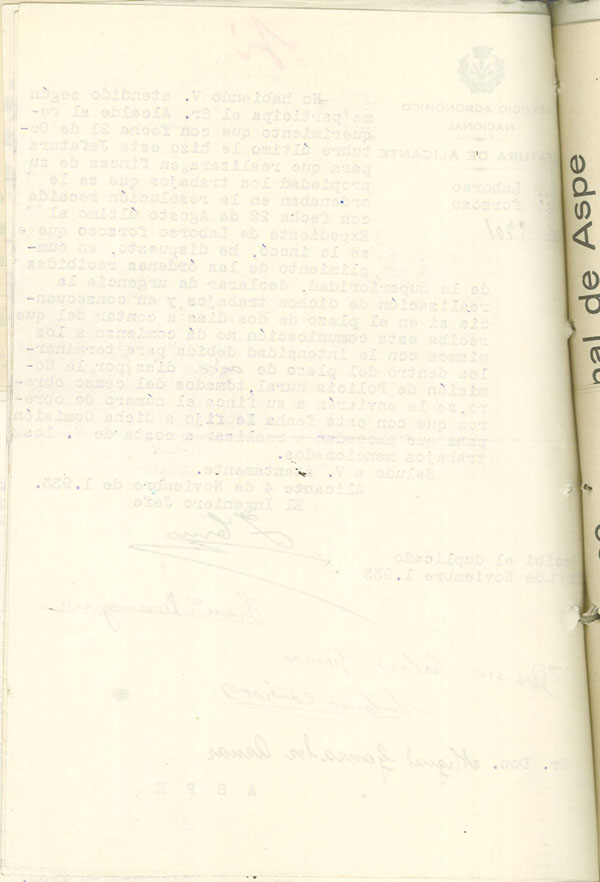 SERVICIO AGRONÓMICO
NACIONAL
JEFATURA DE ALICANTE
Laboreo
forzoso
No habiendo V. atendido según
me participa el Sr. Alcalde al re-
querimiento que con fecha 21 de Oc-
tubre último le hizo esta Jefatura
para que realizara en fincas de su
propiedad los trabajos que se le
ordenaban en la resolución recaida
con fecha 22 de Agosto último al
Expediente de Laboreo forzoso que a
se le incoó, he dispuesto, en cum-
plimiento de las órdenes recibidas
de la Superioridad, declarar de urgencia la
realización de dichos trabajos y en consecuen-
cia si en el plazo de dos dias a contar del que
reciba esta comunicación no dá comienzo a los
mismos con la intensidad debida para terminar-
los dentro del plazo de once dias por la Co-
misión de Policia Rural, tomados del censo obre-
ro, se le enviarán a su finca el número de obre-
ros que con esta fecha le fijo a dicha Comisión
para que procedan a realizar a costa de V. los
trabajos mencionados.
Saludo a V. atentamente.
Alicante 4 de Noviembre de 1.933.
El Ingeniero Jefe
Recibí el duplicado
de Noviembre 1.933
Sr. Don. Miguel
ASPE
nal de Aspe